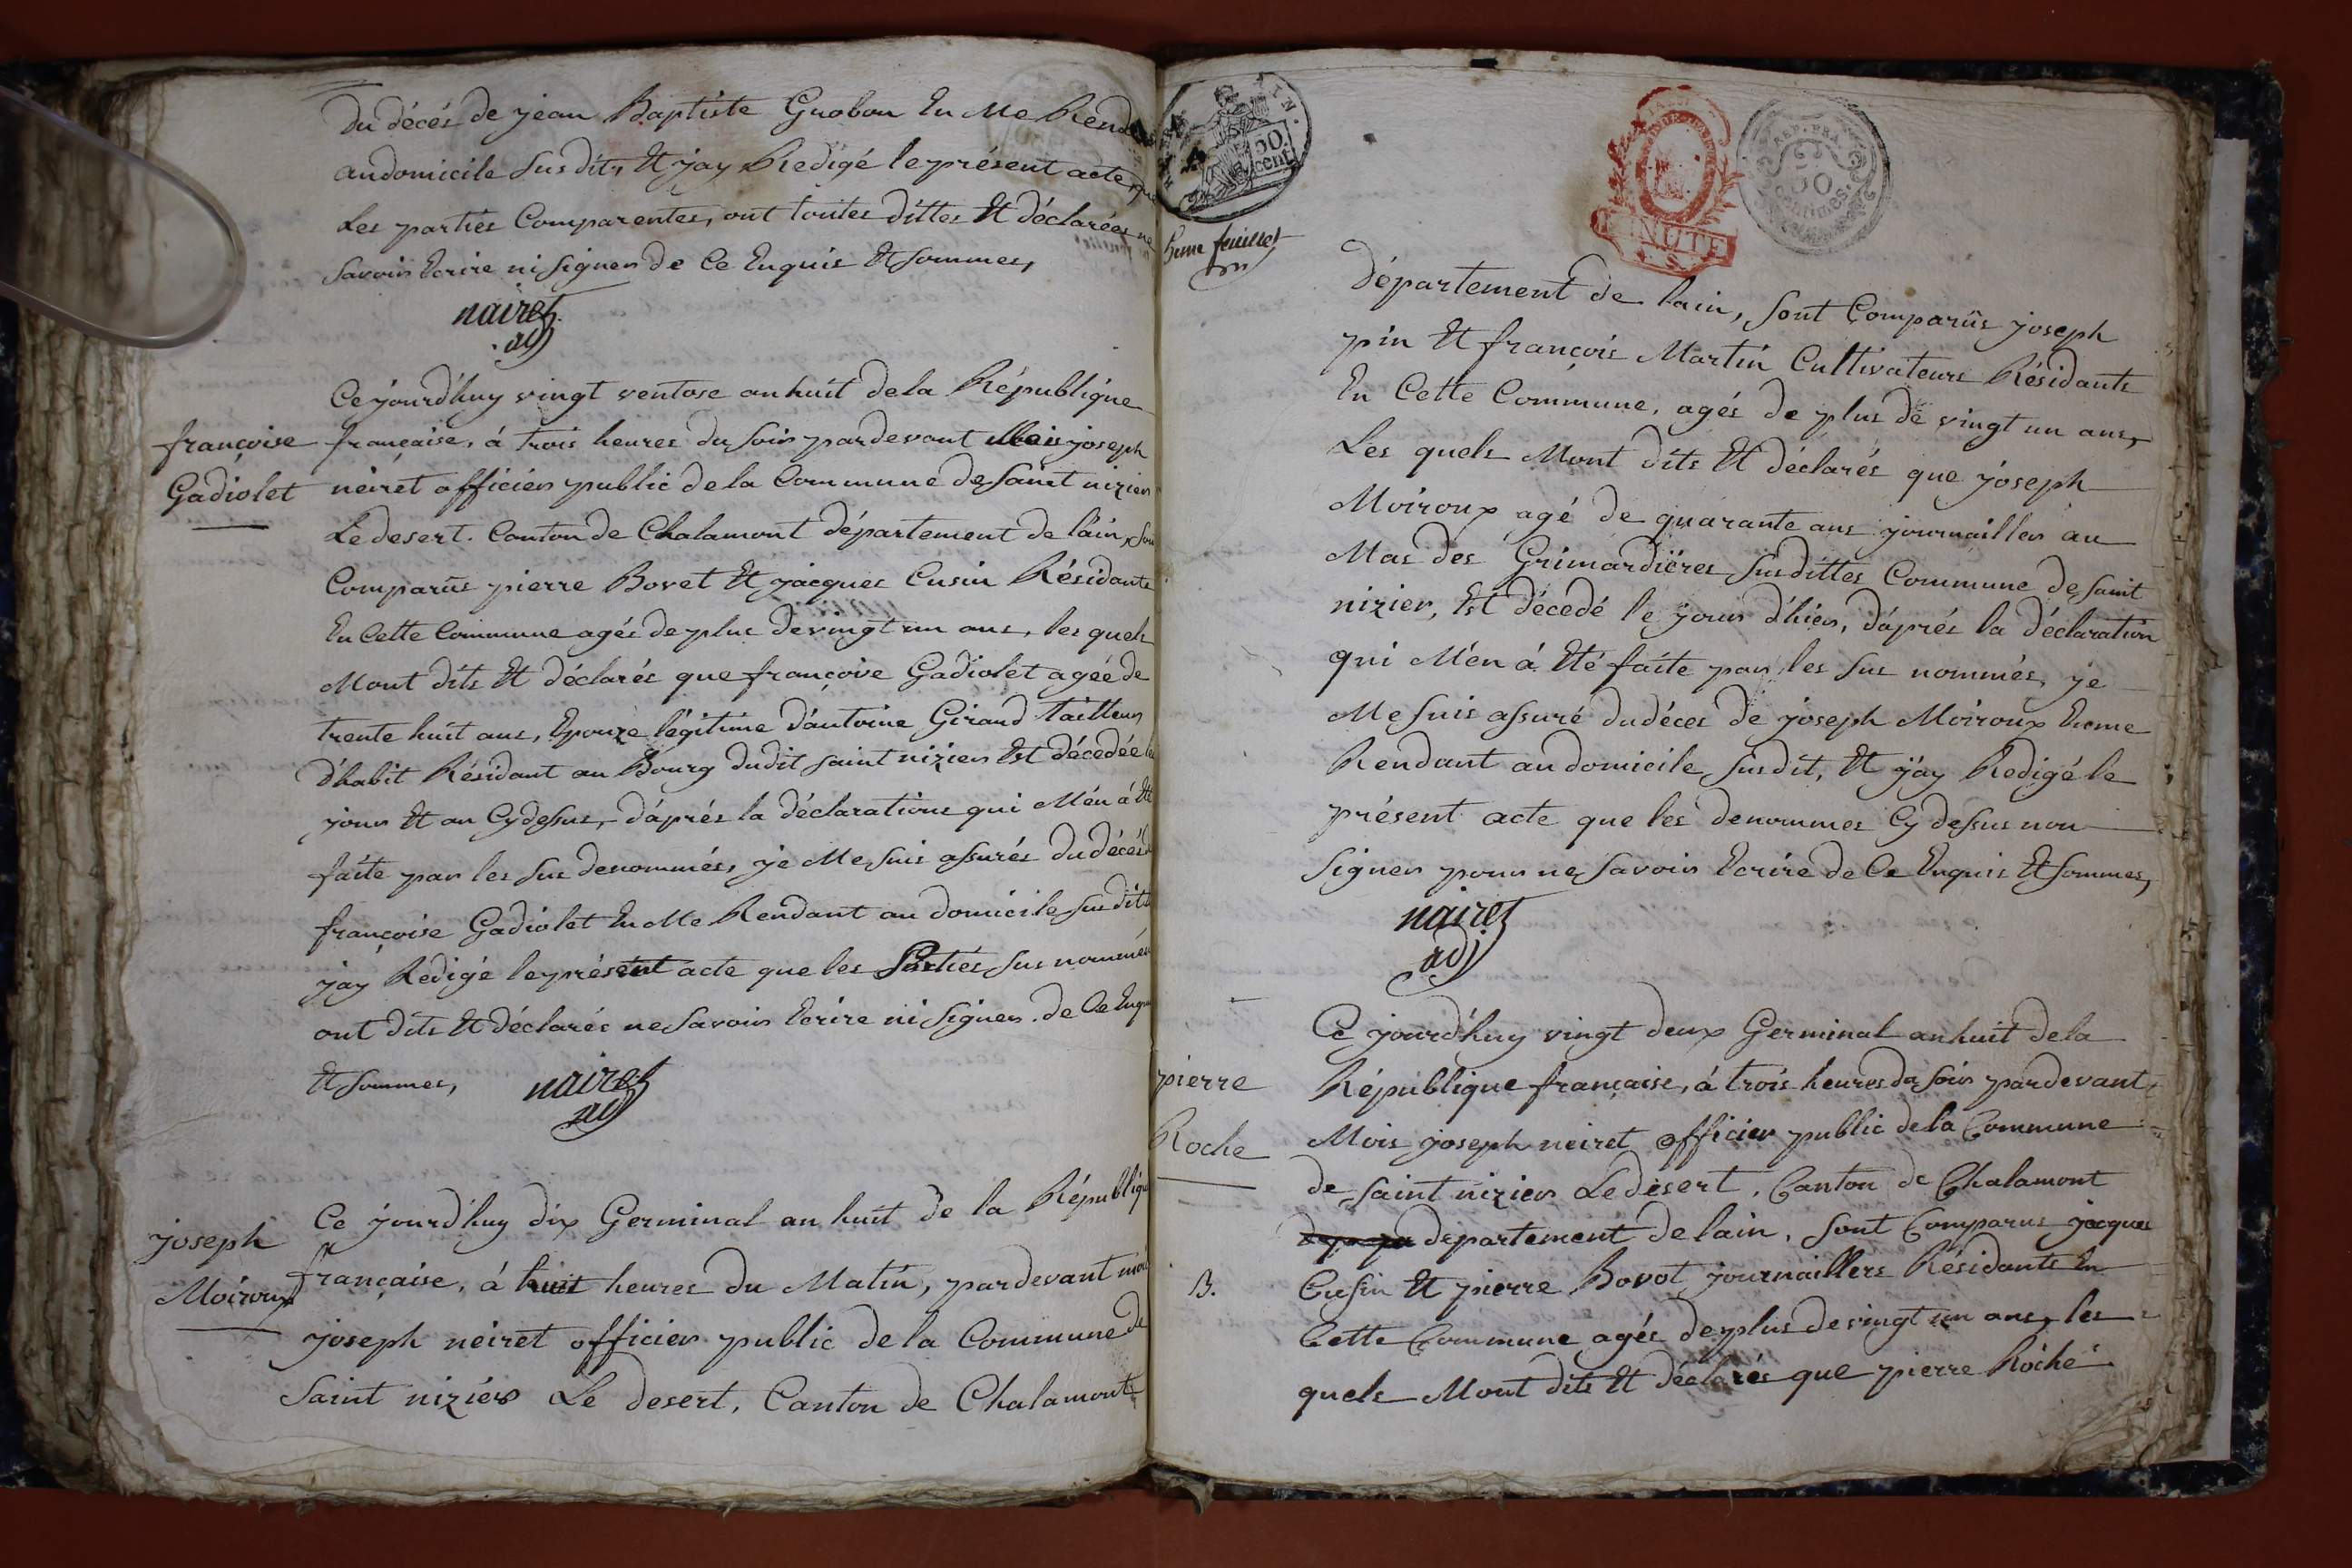 Du décés de jean Baptiste Guobon En Me Rend
audomicile Susdits Et jay Redigé leprésent acte, que
Les partiés Comparentes, ont toutes dittes Et déclarées ne
Savoir Ecrire ni Signer de Ce Enquis Et Sommes,
nairet
françoise
Gadiolet
Ce jourd'huy vingt ventose anhuit dela République
française, á trois heures du Soir pardevant Mois joseph
neiret officier public dela Commune de Saint nizier
Le desert. Canton de Chalamont département de láin, Son
Comparûs pierre Bovet Et jacques Cusin Résidants
En Cette Commune agés deplus devingt un ans, les quels
Mont dits Et déclarés que françoise Gadiolet agée de
trente huit ans, Epouze légitime d'antoine Giraud tailleur
d'habit Résidant au Bourg dudit Saint nizier Est décedée le
jour Et an Cydessus, d'áprés la déclarations qui M'en á Eté
faite par les Sus denommés, je Me Suis assurés du décés d
françoise Gadiolet En Me Rendant au domicile Susdits
jay Redigé leprésent acte que les Partiés Sus nommées
ont dits Et déclarés ne Savoir Ecrire ni Signer de Ce Enqu
Et Sommes,
nairet
joseph
Moiroux
Ce jourd'huy dix Germinal an huit de la Républiq
française, á huit heures du Matin, pardevant moi
joseph neiret officier public de la Commune de
Saint nizier Le desert, Canton de Chalamont
50.
cent
feuillet
MINUTE
REP. FRA.
50
Centimes.
département de lain, Sont Comparûs joseph
pin Et françois Martin Cultivateurs Résidants
En Cette Commune, agés de plus de vingt un ans,
Les quels Mont dits Et déclarés que joseph
Moiroux agé de quarante ans journaillier au
Mas des Grimardiéres Susdittes Commune de Saint
nizier, Est décedé le jour d'hier, d'áprés la déclaration
qui M'en á Eté faite par les Sus nommés, je
Me Suis assuré du déces de joseph Moiroux Enme
Rendant audomicile Susdit, Et j'ay Redigé le
présent acte que les denommes Cy dessus non
Signer pour ne Savoir Ecrire de Ce Enquis Et Sommes,
nairet
pierre
Roche
Ce jourd'huy vingt deux Germinal anhuit dela
République française, á trois heures du Soir pardevant
Mois joseph neiret officier public dela Commune
de Saint nizier Le desert, Canton de Chalamont
departement de lain, Sont Comparus jacques
B.
Cusin Et pierre Bovot journailliers Résidants En
Cette Commune agés deplus de vingt un ans, les
quels Mont dits Et déclarés que pierre Roche